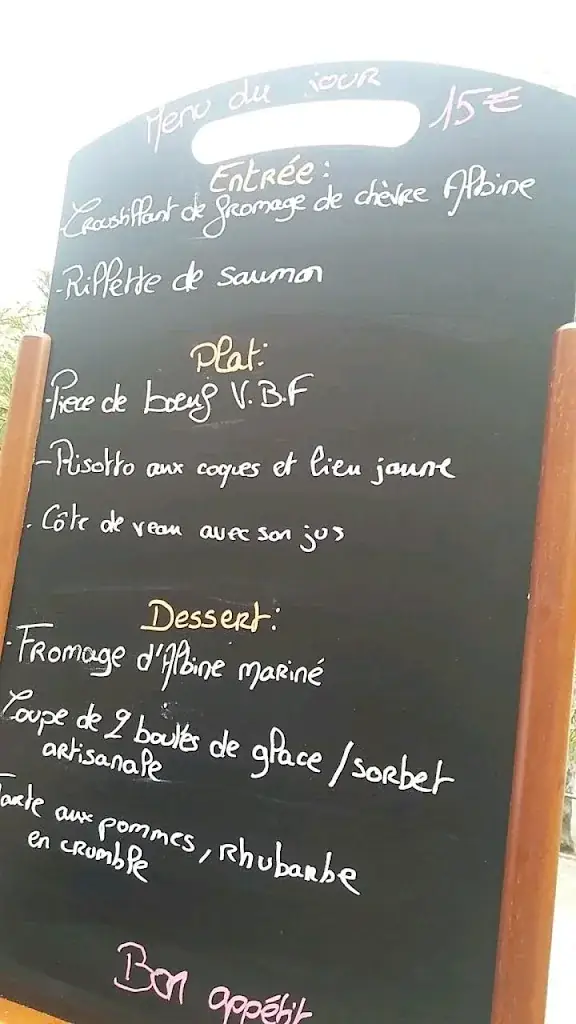 Menu du jour 15€
Entrée:
Croustillant de fromage de chèvre Albine
-Rillette de saumon
Plat:
-Piece de boeuf V.B.F
-Risotto aux coques et lieu jaune
. Côte de veau avec son jus
Dessert:
-Fromage d'Albine mariné
Coupe de 2 boules de glace / sorbet
artisanale
Tarte aux pommes, rhubarbe
en crumble
Bon appétit